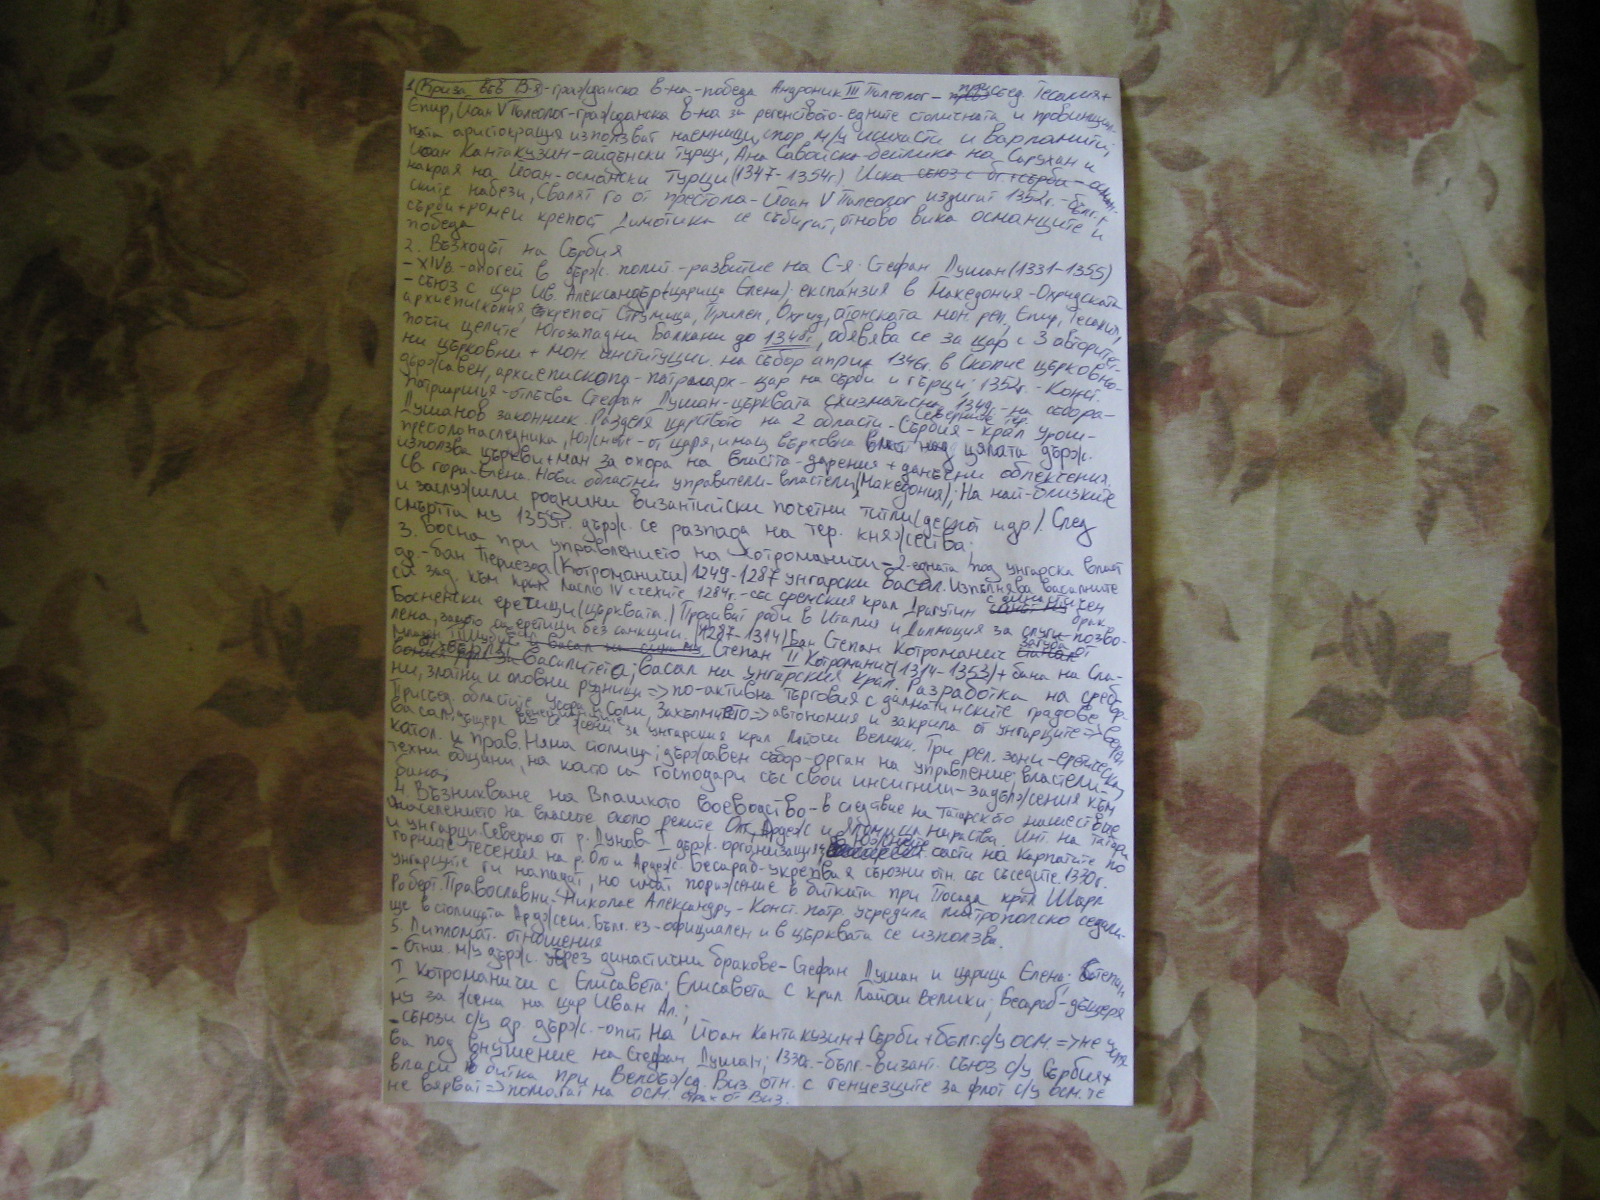 1. Криза във В-я - гражданска в-на - победа Андроник III Палеолог - присъед. Тесалия +
Епир, Йоан V Палеолог - гражданска в-на за регенството - едните столичната и провинциал-
ната аристокрация използват наемници, спор м/у исихасти и варламити;
Йоан Кантакузин - айдънски турци, Ана Савойска - бейлика на Сарухан и
накрая на Йоан - османски турци (1347-1354г) Иска съюз с
ските набези, Свалят го от престола - Йоан V Палеолог издигат 1352г. - бълг. +
сърби + ромеи крепост Димотика се събират, отново вика османците и
победа
2. Възходът на Сърбия
- XIVв. - апогей в държ. полит. - развитие на С-я. Стефан Душан (1331-1355)
- съюз с цар Ив. Александър (царица Елена); експанзия в Македония - Охридската
архиепископия, крепост Струмица, Прилеп, Охрид, атонската мон. реп., Епир, Тесалия,
почти целите Югозападни Балкани до 1348г., обявява се за цар с 3 авторитет-
ни църковни + мон. институции. на събор април 1346г. в Скопие църковно-
държавен, архиепископа - патриарх - цар на сърби и гърци; 1352г. - Конст.
Патриаршия - отлъчва Стефан Душан - църквата схизматична, 1349 - на събора -
Душанов законник. Разделя царството на 2 области - Северните тер.
Сърбия - крал Урош -
престолонаследника, Южните - от царя, имащ върховна власт над цялата държ.
използва църкви + ман за опора на властта - дарения + данъчни облекчения.
Св. гора - Елена. Нови областни управители - властели (Македония); На най-близките
и заслужили роднини византийски почетни титли (деспот и др). След
смъртта му 1355г. държ. се разпада на тер. княжества;
3. Босна при управлението на Котроманичи - 2 - едната под унгарска власт
др. - бан Приезда (Котроманичи) 1249-1287 унгарски васал. Изпълнява васалните
си зад. към крал Ласло IV с чехите, 1284г. - със сремския крал Драгутин с династичен
брак
Босненски еретици (църквата.) Продават роби в Италия и Далмация за слуги - позво-
лена, защото са еретици без санкции. (1287-1314) Бан Степан Котроманич загуба от
Младен Шубич Степан II Котроманич (1314-1353) + бана на Сла-
вония за васалитета; васал на унгарския крал. Разработка на среб-
ни, златни и оловни рудници => по-активна търговия с далматинските градове.
Присъед. областите Усора и Соли, Захълмието => автономия и закрила от унгарците =>
васал, дъщеря му се жени за унгарския крал Лайош Велики. Три рел. зони - еретическа,
катол. и прав. Няма столица; държавен събор - орган на управление; властели -
техни общини, на които са господари със свои инсигнии - задължения към
бина;
4. Възникване на Влашкото воеводство - в следствие на татарското нашествие
населението на власите около реките Олт, Арджеш и Яломица нараства. Инт. на татари
и унгарци. Северно от р. Дунав I държ. организация, в южните части на Карпатите по
горните течения на р. Олт и Арджеш. Бесараб - укрепва я съюзни отн. със съседите. 1330г.
унгарците ги нападат, но имат поражение в битката при Посада крал Шарл
Роберт. Православни - Николае Александру - Конст. патр. учредила митрополско седали-
ще в столицата Арджеш. Бълг. ез - официален и в църквата се използва.
5. Дипломат. отношения
- отнш. м/у държ. чрез династични бракове - Стефан Душан и царица Елена; Степан
I Котроманич с Елисавета; Елисавета с крал Лайош Велики; Бесараб - дъщеря
му за жена на цар Иван Ал.;
- съюзи с/у др. държ. - опит на Йоан Кантакузин + Сърби + бълг. с/у осм => не успя
ва под внушение на Стефан Душан; 1330г. - бълг. - визант. съюз с/у Сърбия +
власи в битка при Велбъжд. Виз. отн. с генуезците за флот с/у осм. те
не вярват => помагат на осм. страх от Виз.